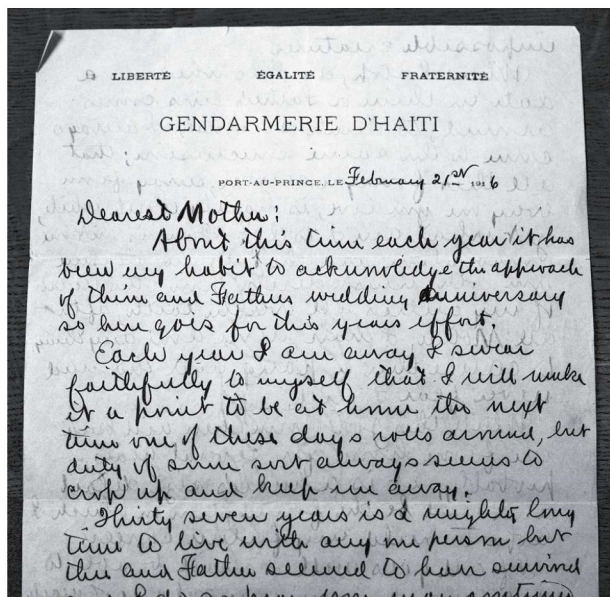 LIBERTÉ ÉGALITÉ FRATERNITÉ
GENDARMERIE D'HAITI
PORT-AU-PRINCE, LE February 21st 1916
Dearest Mother:
About this time each year it has
been my habit to acknowledge the approach
of thine and Fathers wedding anniversary
so here goes for this years effort.
Each year I am away I swear
faithfully to myself that I will make
it a point to be at home the next
time one of these days rolls around, but
duty of some sort always seems to
crop up and keep me away.
Thirty seven years is a mighty long
time to live with any one person but
thee and Father seemed to have survived